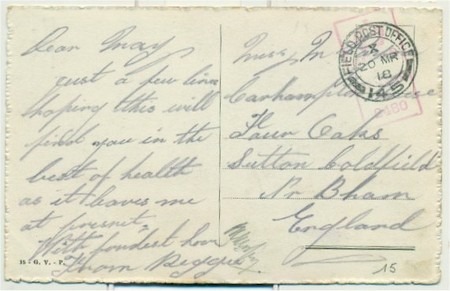 Dear May
Just a few lines
hoping this will
find you in the
best of health
as it leaves me
at present,
With fondest love
From Reggie
15 - G. Y. - P.
Miss M
Carhampton
Four Oaks
Sutton Coldfield
Nr Bham
England
FIELD POST OFFICE
X
20 MR
18
145
15